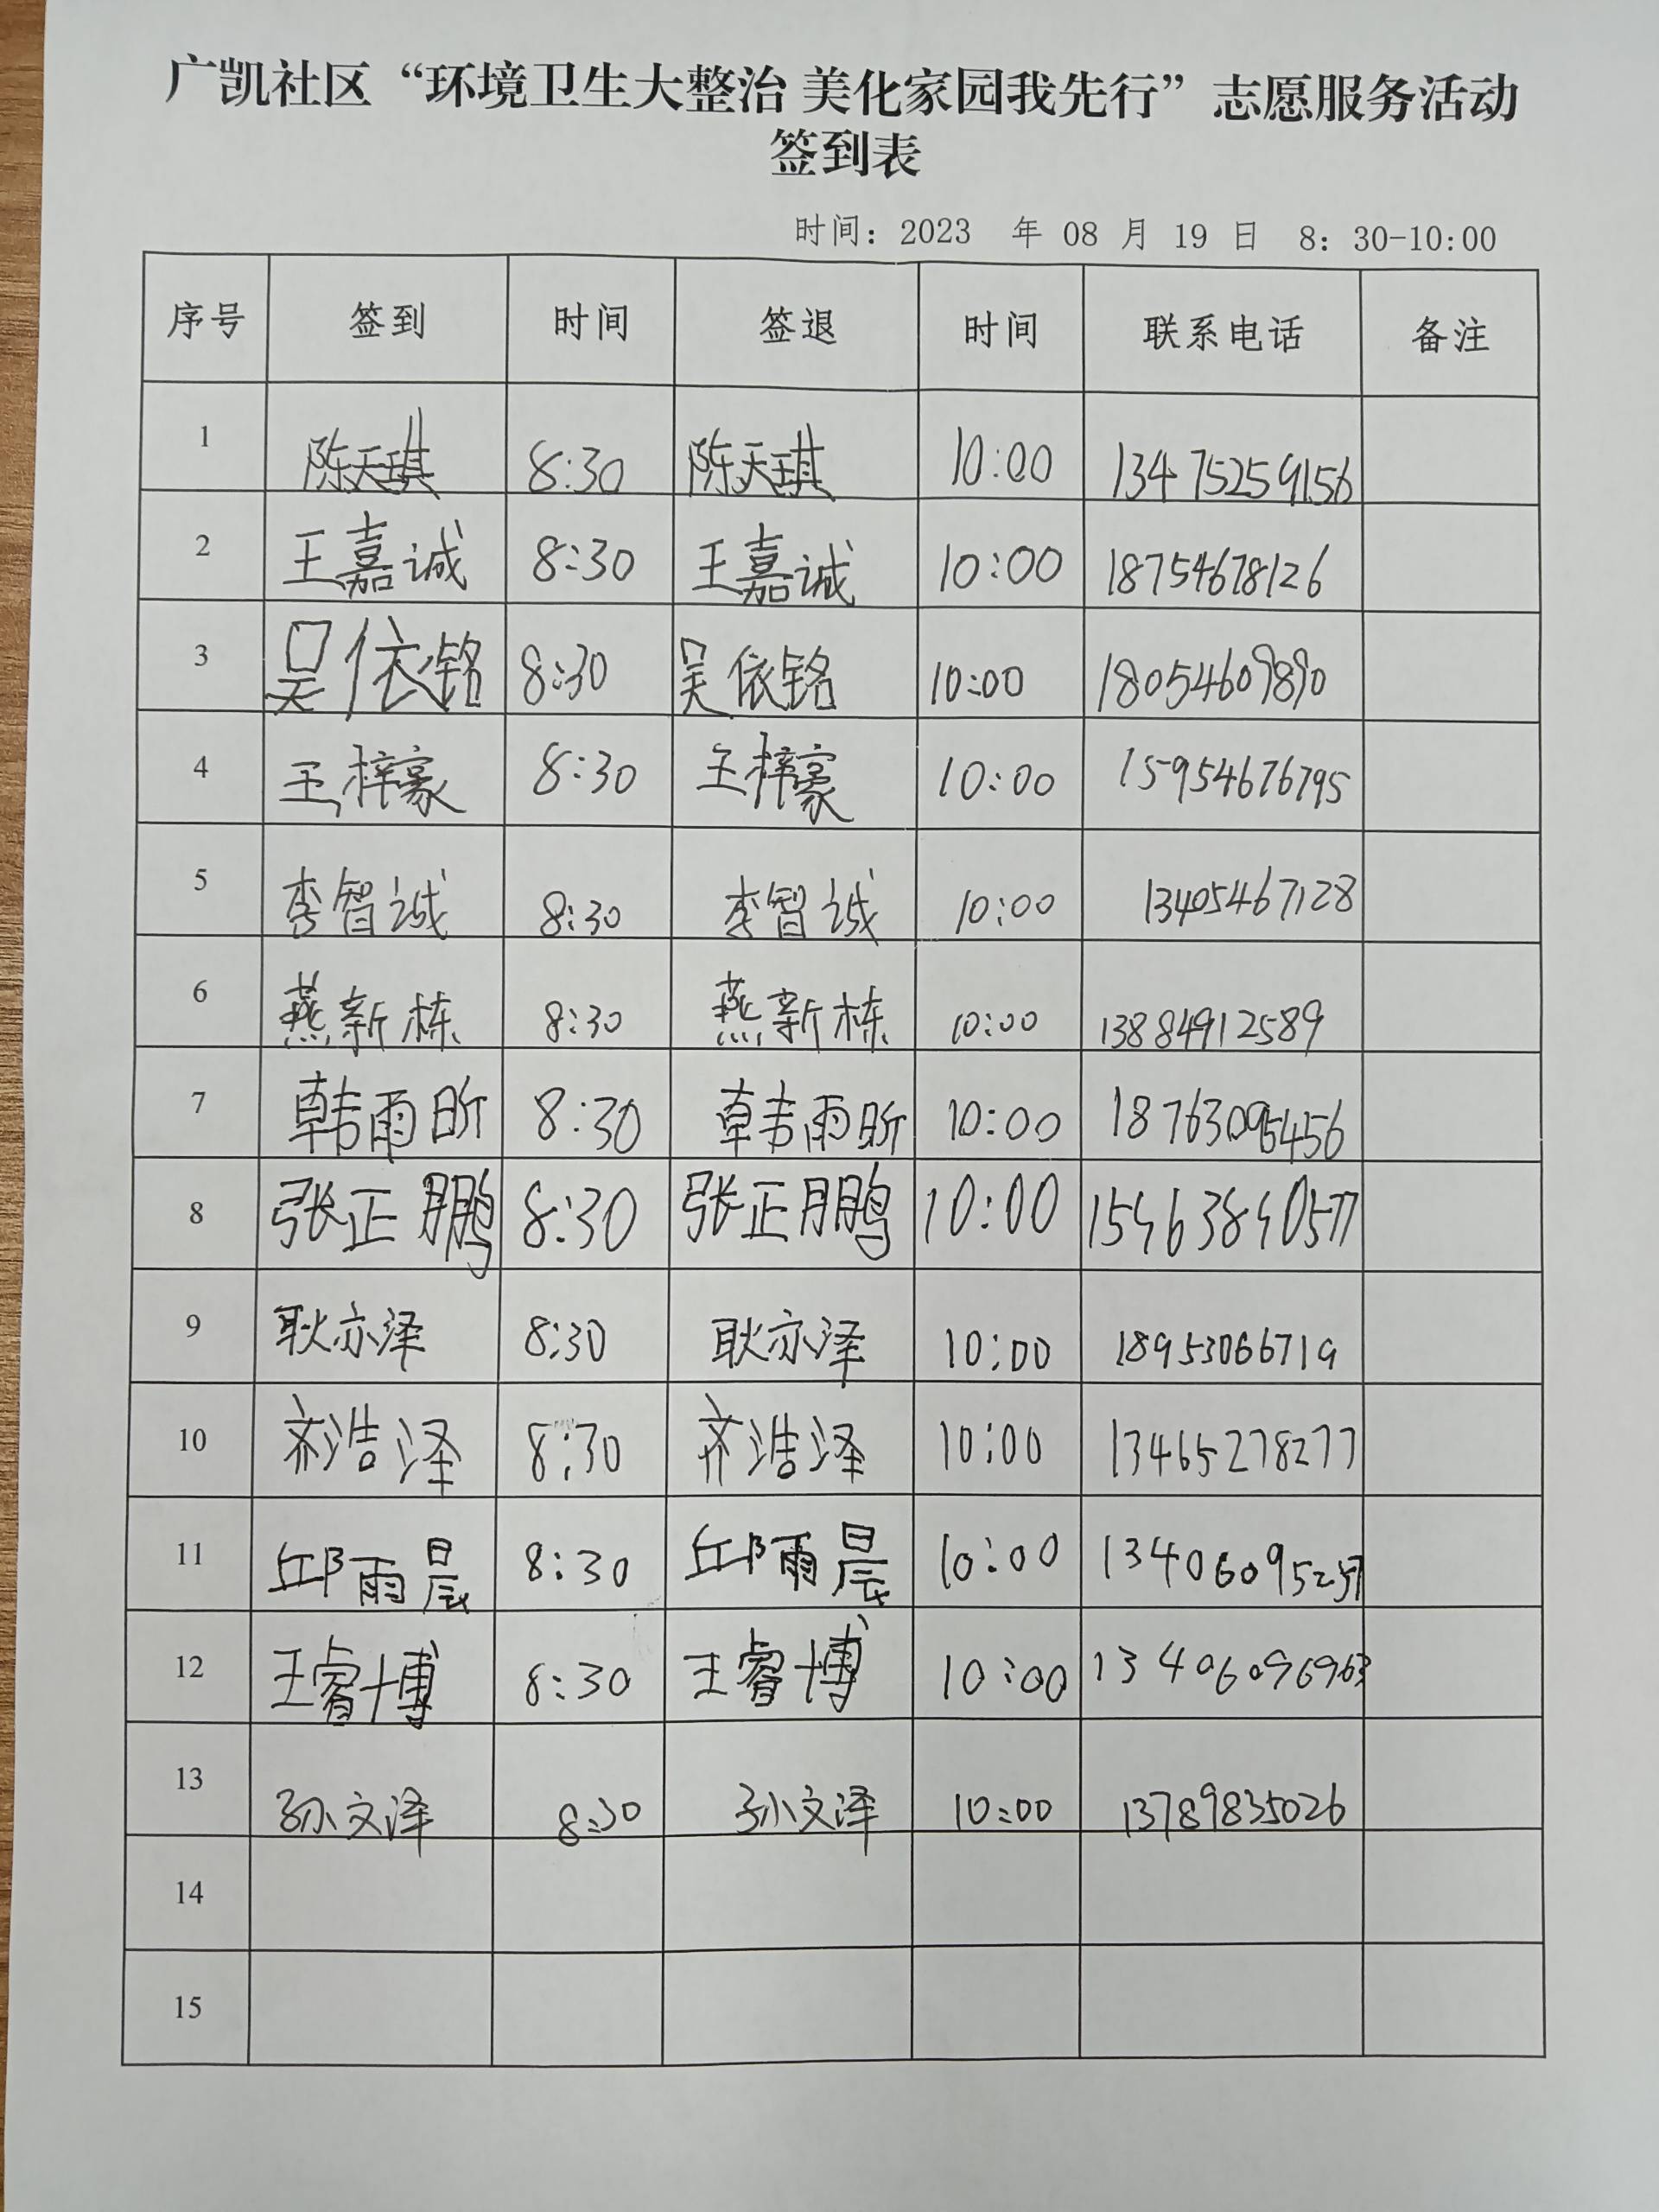 广凯社区“环境卫生大整治 美化家园我先行”志愿服务活动
签到表
时间：2023 年 08 月 19 日 8：30-10:00
序号 签到 时间 签退 时间 联系电话 备注
1 陈天琪 8:30 陈天琪 10:00 13475259156
2 王嘉诚 8:30 王嘉诚 10:00 18754678126
3 吴依铭 8:30 吴依铭 10:00 18054609890
4 王梓豪 8:30 王梓豪 10:00 15954676795
5 李智诚 8:30 李智诚 10:00 13405467128
6 燕新栋 8:30 燕新栋 10:00 13884912589
7 韩雨昕 8:30 韩雨昕 10:00 18763095456
8 张正鹏 8:30 张正鹏 10:00
9 耿亦泽 8:30 耿亦泽 10:00 18953066719
10 齐浩泽 8:30 齐浩泽 10:00 13465278277
11 邱雨晨 8:30 邱雨晨 10:00
12 王睿博 8:30 王睿博 10:00 13406096963
13 孙文泽 8:30 孙文泽 10:00 13789835026
14
15